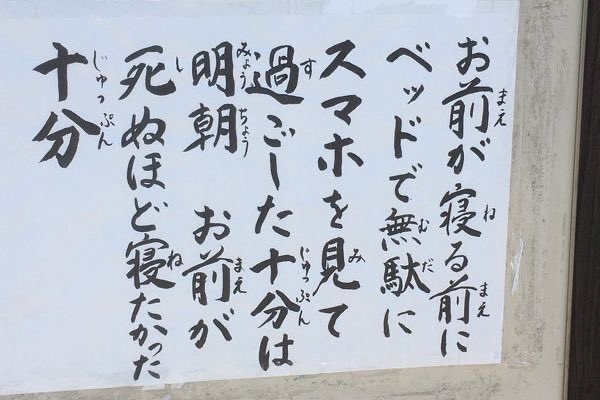 お前が寝る前に
ベッドで無駄に
スマホを見て
過ごした十分は
明朝　お前が
死ぬほど寝たかった
十分
まえ
ね
まえ
むだ
み
す
じゅっぷん
みょうちょう
まえ
し
ね
じゅっぷん